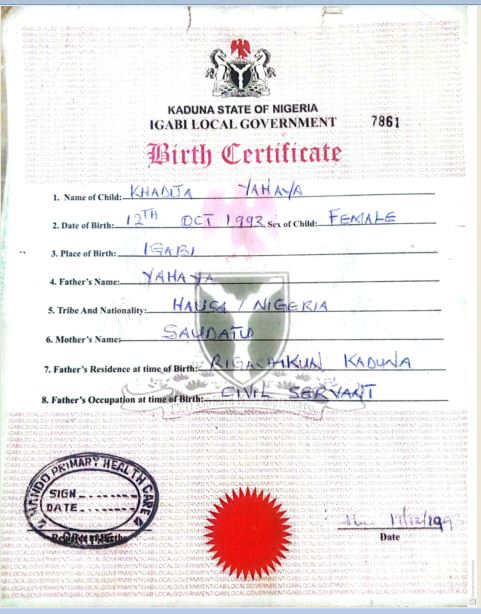 KADUNA STATE OF NIGERIA
IGABI LOCAL GOVERNMENT 7861
Birth Certificate
1. Name of Child: KHADIJA YAHAYA
2. Date of Birth: 12TH OCT 1993 Sex of Child: FEMALE
3. Place of Birth: IGABI
4. Father's Name: YAHAYA
5. Tribe And Nationality: HAUSA / NIGERIA
6. Mother's Name: SAUDATU
7. Father's Residence at time of Birth: RIGACHIKUN KADUNA
8. Father's Occupation at time of Birth: CIVIL SERVANT
MANDO PRIMARY HEALTH CARE
SIGN
DATE
Date